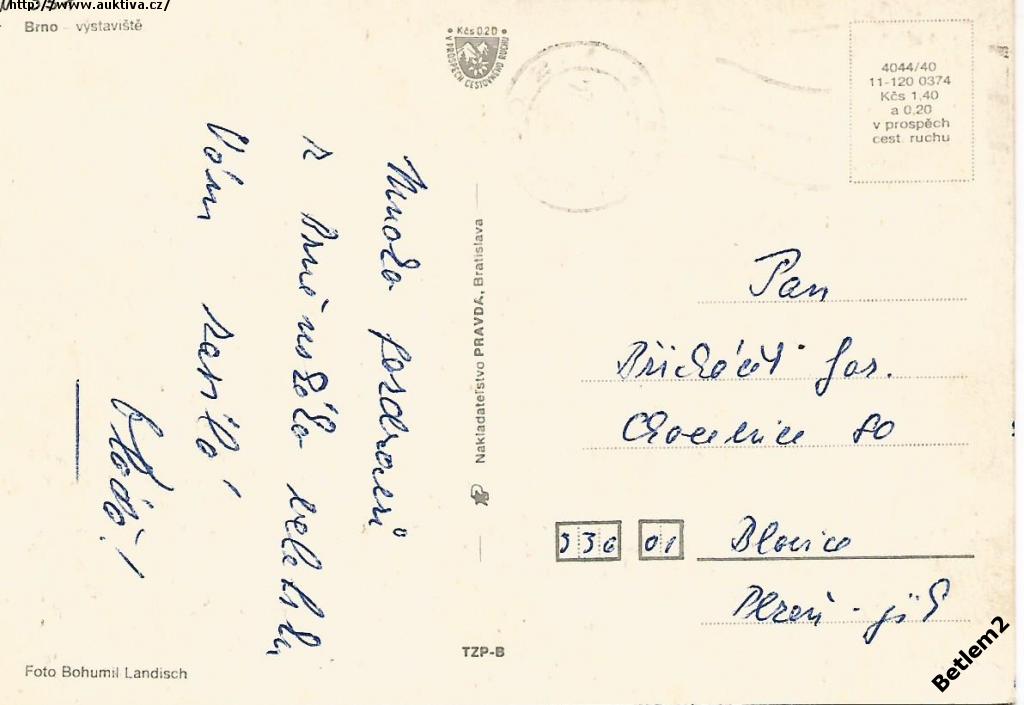 http://www.auktiva.cz/
Brno - výstaviště
Kčs 0.20
V PROSPĚCH CESTOVNÉHO RUCHU
4044/40
11-120 0374
Kčs 1,40
a 0,20
v prospěch
cest. ruchu
Mnoho pozdravů
z Brněnského veletrhu
Vám zasílá
Vláďa!
Nakladateľstvo PRAVDA, Bratislava
Pan
Břicháčk Jar.
Chocenice 80
336 01 Blovice
Plzeň - jih
TZP-B
Foto Bohumil Landisch
Betlem2